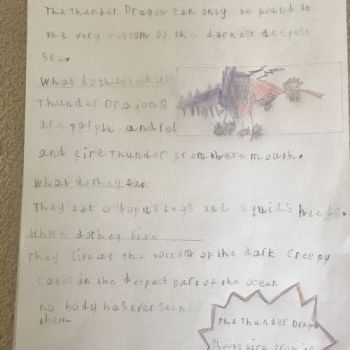 The Thunder Dragon can only be found at
the very bottom of the darkest deepest
sea.
What do they look like
Thunder Dragons
are purple and red
and fire thunder from there mouth.
What dothey eat
They eat octopus legs and squids heads.
where dothey live
They live at the bottom of the dark creepy
caves in the deepest part of the ocean
no body has ever seen
them
The Thunder Dragon
Shoots fire from its